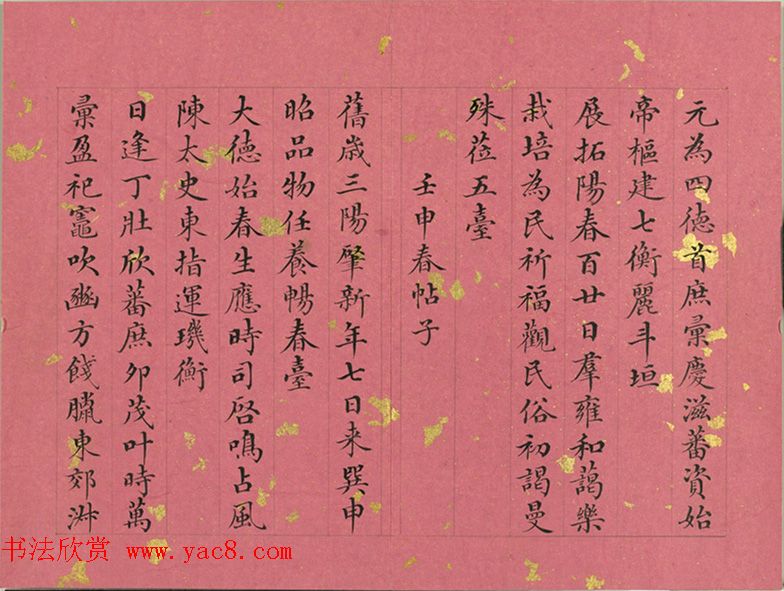 元為四德首庶彚慶滋蕃資始
帝樞建七衡麗斗垣
展拓陽春百廿日羣雍和藹樂
栽培為民祈福觀民俗初謁曼
殊莅五臺
壬申春帖子
舊歲三陽肇新年七日来巽申
昭品物任養暢春臺
大德始春生應時司啓鳴占風
陳太史東指運璣衡
日逢丁壯欣蕃庶卯茂叶時萬
彙盈祀竈吹豳方餞臘東郊
书法欣赏 www.yac8.com